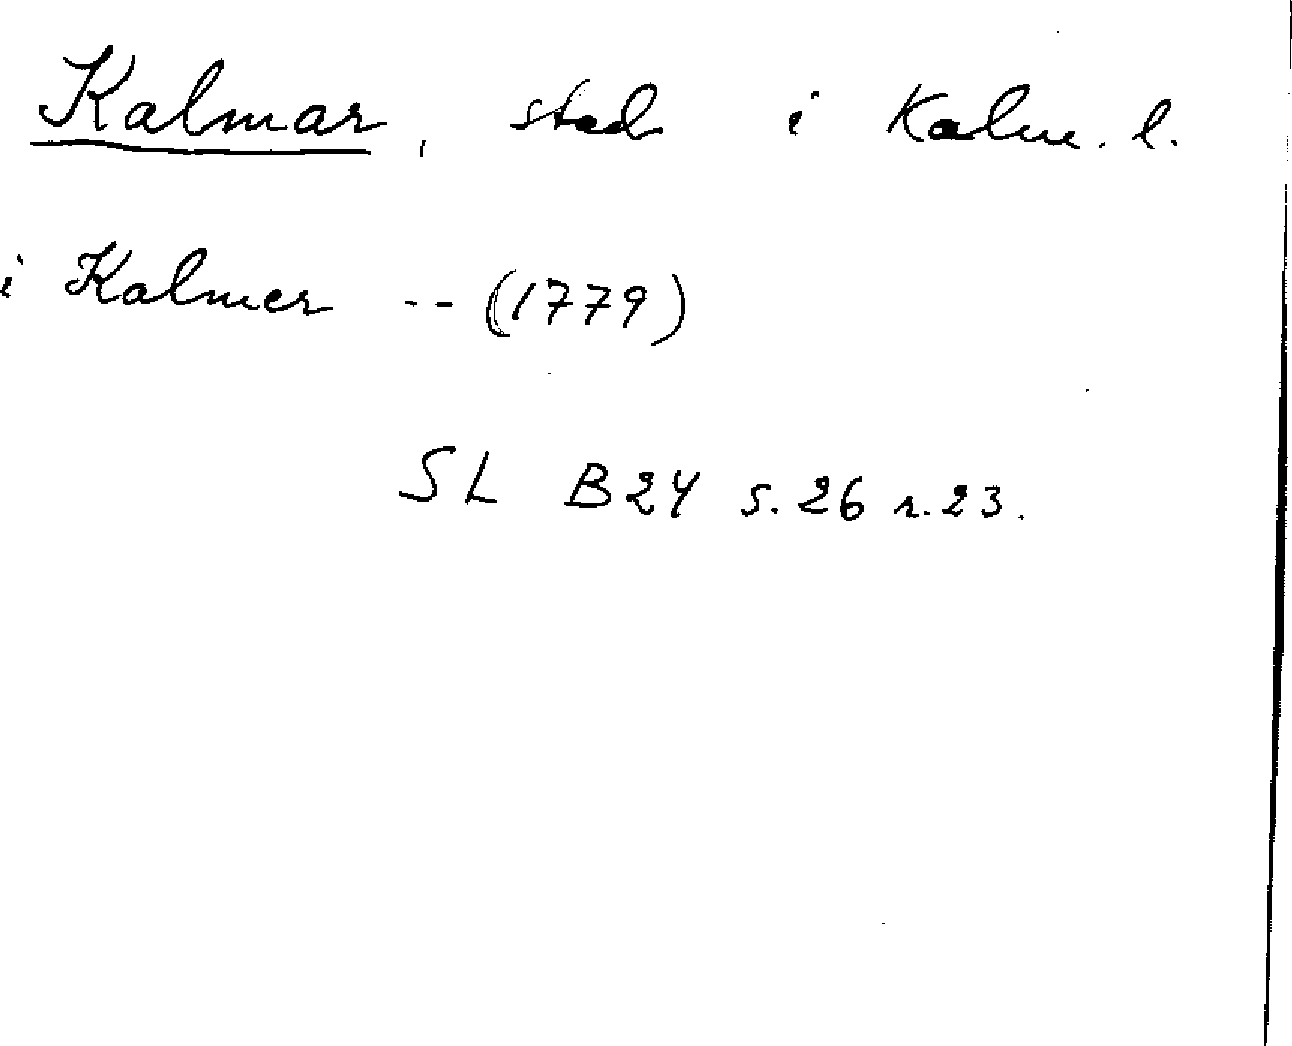 Kalmar, stad i Kalm. l.
i Kalmer -- (1779)
SL B24 s. 26 r. 23.